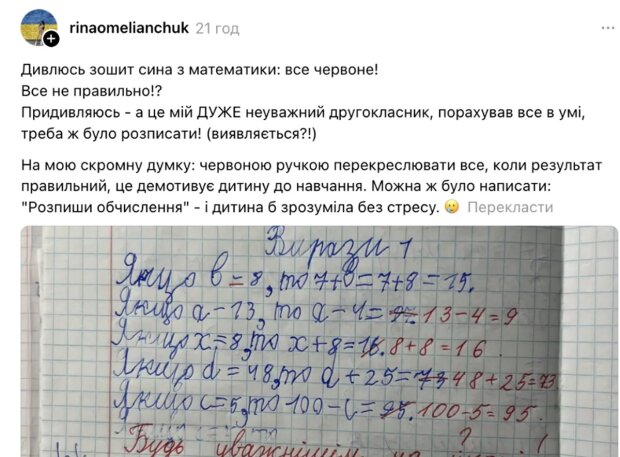 rinaomelianchuk 21 год
Дивлюсь зошит сина з математики: все червоне!
Все не правильно!?
Придивляюсь - а це мій ДУЖЕ неуважний другокласник, порахував все в умі,
треба ж було розписати! (виявляється?!)
На мою скромну думку: червоною ручкою перекреслювати все, коли результат
правильний, це демотивує дитину до навчання. Можна ж було написати:
"Розпиши обчислення" - і дитина б зрозуміла без стресу. 🥲 Перекласти
Вирази 1
Якщо b = 8, то 7+b = 7+8 = 15.
Якщо a - 13, то a - 4 = 9. 13 - 4 = 9
Якщо x = 8, то x + 8 = 16. 8 + 8 = 16
Якщо d = 48, то d + 25 = 73 48 + 25 = 73
Якщо c = 5, то 100 - c = 95. 100 - 5 = 95.
Будь уважнішим